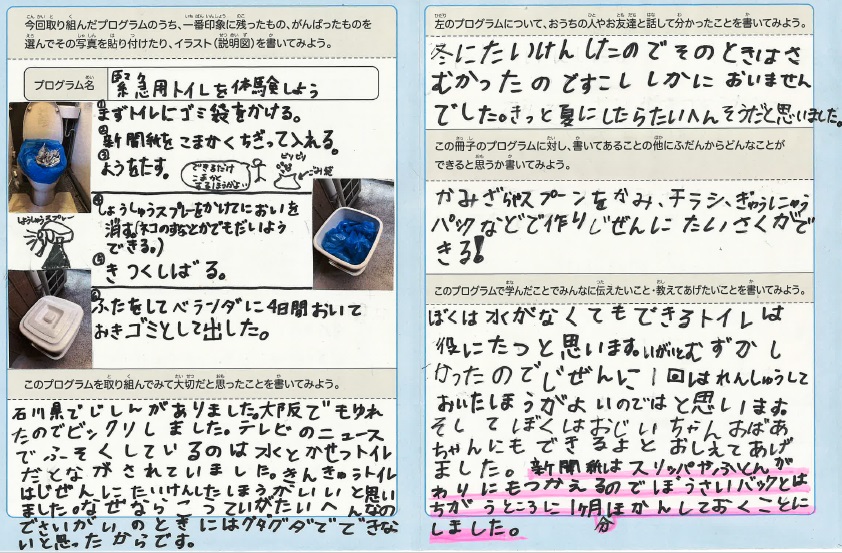 今回取り組んだプログラムのうち、一番印象に残ったもの、がんばったものを
選んでその写真を貼り付けたり、イラスト（説明図）を書いてみよう。
プログラム名
緊急用トイレを体験しよう
①まずトイレにゴミ袋をかける。
②新聞紙をこまかくちぎって入れる。
③ようをたす。
できるだけ
こまかく
するほうがよい
ビリビリ
ごみ袋
④しょうしゅうスプレーをかけてにおいを
消す。(ネコのすなとかでもだいよう
できる。)
しょうしゅうスプレー
⑤きつくしばる。
⑥ふたをしてベランダに4日間おいて
おきゴミとして出した。
このプログラムを取り組んでみて大切だと思ったことを書いてみよう。
石川県でじしんがありました。大阪でもゆれ
たのでビックリしました。テレビのニュース
でふそくしているのは水とかせつトイレ
だとながされていました。きんきゅうトイレ
はじぜんにたいけんしたほうがいいと思い
ました。なぜならこっていがたいへんなの
でさいがいのときにはグダグダでできな
いと思ったからです。
左のプログラムについて、おうちの人やお友達と話して分かったことを書いてみよう。
冬にたいけんしたのでそのときはさ
むかったのですこししかにおいません
でした。きっと夏にしたらたいへんそうだと思いました。
この冊子のプログラムに対し、書いてあることの他にふだんからどんなことが
できると思うか書いてみよう。
かみざらやスプーンをかみ、チラシ、ぎゅうにゅう
パックなどで作りじぜんにたいさくがで
きる!
このプログラムで学んだことでみんなに伝えたいこと・教えてあげたいことを書いてみよう。
ぼくは水がなくてもできるトイレは
役にたつと思います。いがいとむずかし
かったのでじぜんに1回はれんしゅうして
おいたほうがよいのではと思います。
そしてぼくはおじいちゃんおばあ
ちゃんにもできるよとおしえてあげ
ました。新聞紙はスリッパやふとんが
わりにもつかえるのでぼうさいバックとは
ちがうところに1ヶ月分ほかんしておくことに
しました。